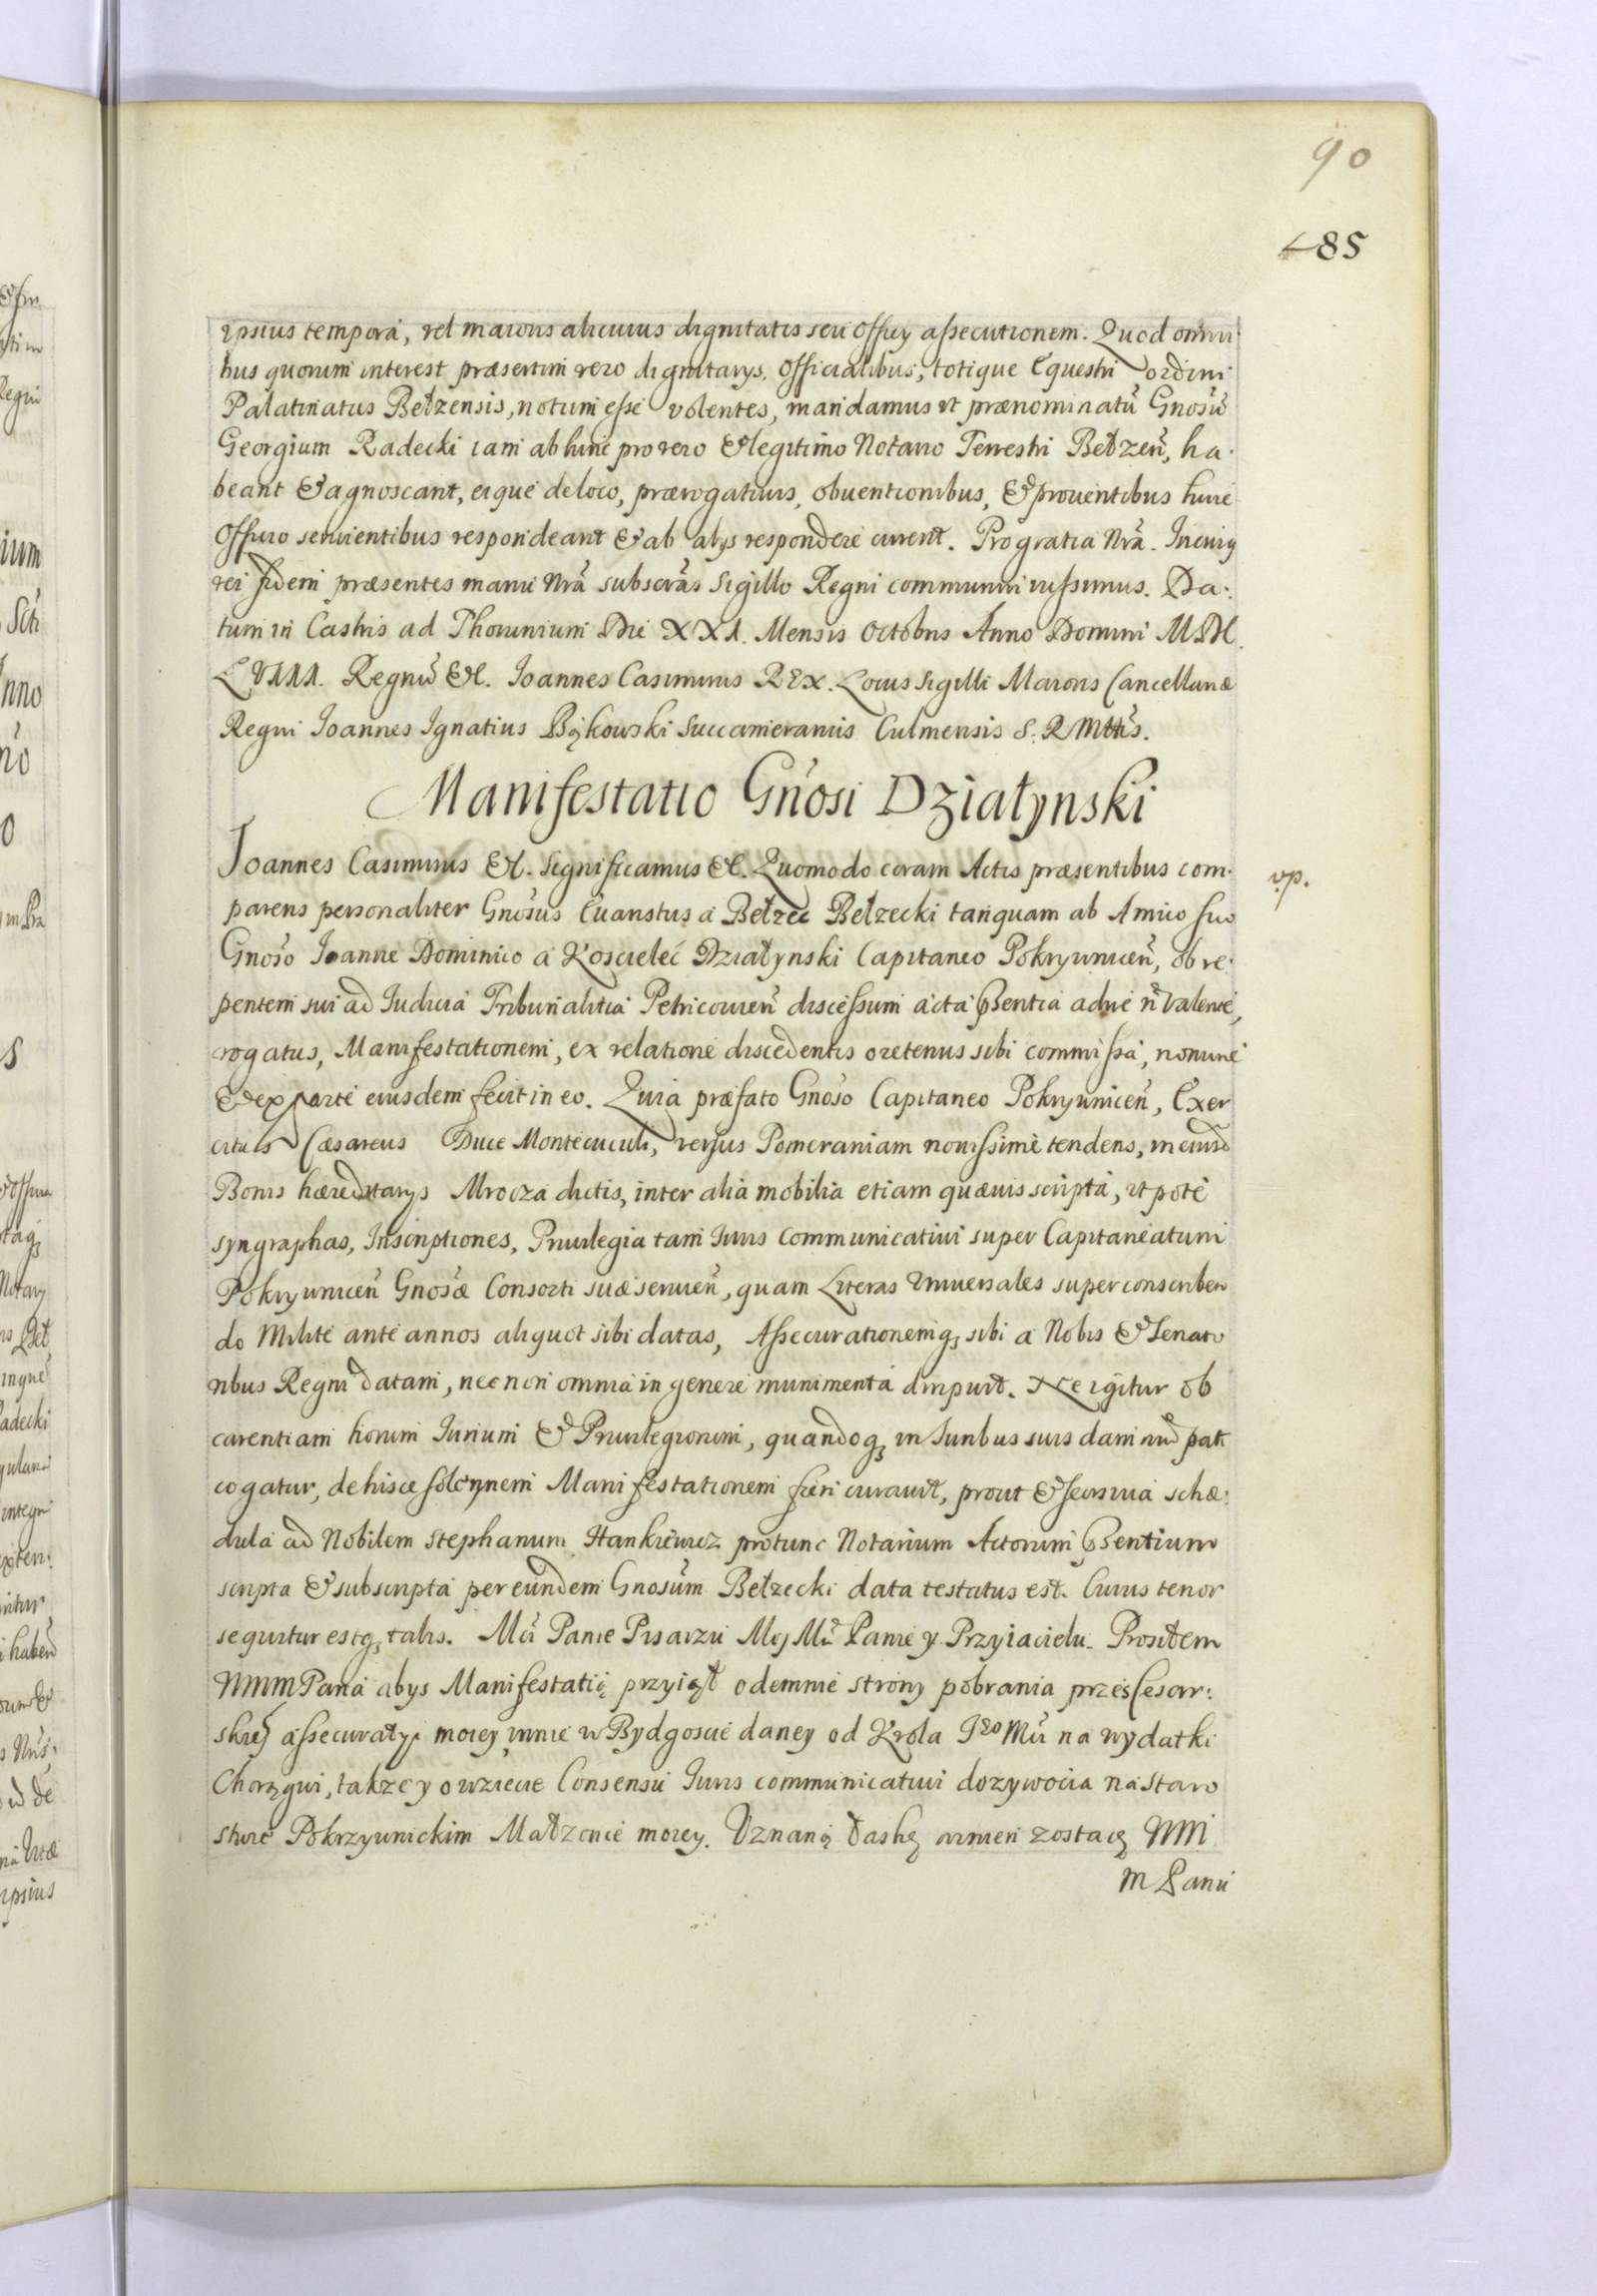 90
485
ipsius tempora, vel maioris alicuius dignitatis seu Officij assecutionem. Quod omni-
bus quorum interest præsertim vero dignitarijs, Officialibus, totique Equestri ordini
Palatinatus Bełzensis, notum esse volentes, mandamus ut prænominatũ Gnosũ
Georgium Radecki iam ab hinc pro vero & legitimo Notario Terrestri Bełzeñ, ha-
beant & agnoscant, eique de loco, prærogatiuis, obuentionibus, & prouentibus huic
Officio seruientibus respondeant & ab alijs responderi curent. Pro gratia Nrã. In cuius
rei fidem præsentes manu Nrã subscrãs Sigillo Regni communiri iussimus. Da-
tum in Castris ad Thorunium Die XXI. Mensis Octobris Anno Domini MDC
LVIII. Regnũ &c. Ioannes Casimirus REX. Locus Sigilli Maioris Cancellariæ
Regni Ioannes Ignatius Bąkowski Succamerarius Culmensis S. R Mttis.
Manifestatio Gñosi Działynski
Ioannes Casimirus &c. Significamus &c. Quomodo coram Actis præsentibus com-
vp.
parens personaliter Gnosus Euaristus a Bełzec Bełzecki tanquam ab Amico suo
Gnoso Ioanne Dominico a Koscielec Działynski Capitaneo Pokrzyuniceñ, ob re-
pentem sui ad Iudicia Tribunalitia Petricouieñ discessum acta pñsentia adire ñ valente,
rogatus, Manifestationem, ex relatione discedentis oretenus sibi commissa, nomine
& ex parte eiusdem fecit in eo. Quia præfato Gnoso Capitaneo Pokrzyuniceñ, Exer
citus Cæsareus Duce Montecuculi, versus Pomeraniam nouissimè tendens, in eiusd
Bonis hæreditarijs Mrocza dictis, inter alia mobilia etiam quæuis scripta, ut pote
syngraphas, Inscriptiones, Priuilegia tam Iuris communicatiui super Capitaneatum
Pokrzyuniceñ Gnosæ Consorti suæ seruieñ, quam Literas Uniuersales super conscriben
do Milite ante annos aliquot sibi datas, Assecurationemq; sibi a Nobis & Senato
ribus Regni datam, nec non omnia in genere munimenta diripuit. Ne igitur ob
carentiam horum Iurium & Priuilegiorum, quandoq; in Iuribus suis damnũ pati
cogatur, de hisce solennem Manifestationem fieri curauit, prout & seorsiua schæ-
dula ad Nobilem Stephanum Hankiewicz protunc Notarium Actorum pñsentium
scripta & subscripta per eundem Gnosum Bełzecki data testatus est. Cuius tenor
sequitur estq; talis. Mci Panie Pisarzu Moj Mci Panie y Przyiacielu. Prosiłem
WMM Pana abys Manifestatią przyiął odemnie strony pobrania przes Cesar-
skie assecuratyi moiey mnie w Bydgoscie daney od Krola Igo Mci na wydatki
Chorągwi, takze y o wziecie Consensu Iuris communicatiui dozywocia na Staro
stwie Pokrzyunickim Małzonce moiey. Uznaną łaskę winien zostaię WM
M Panu